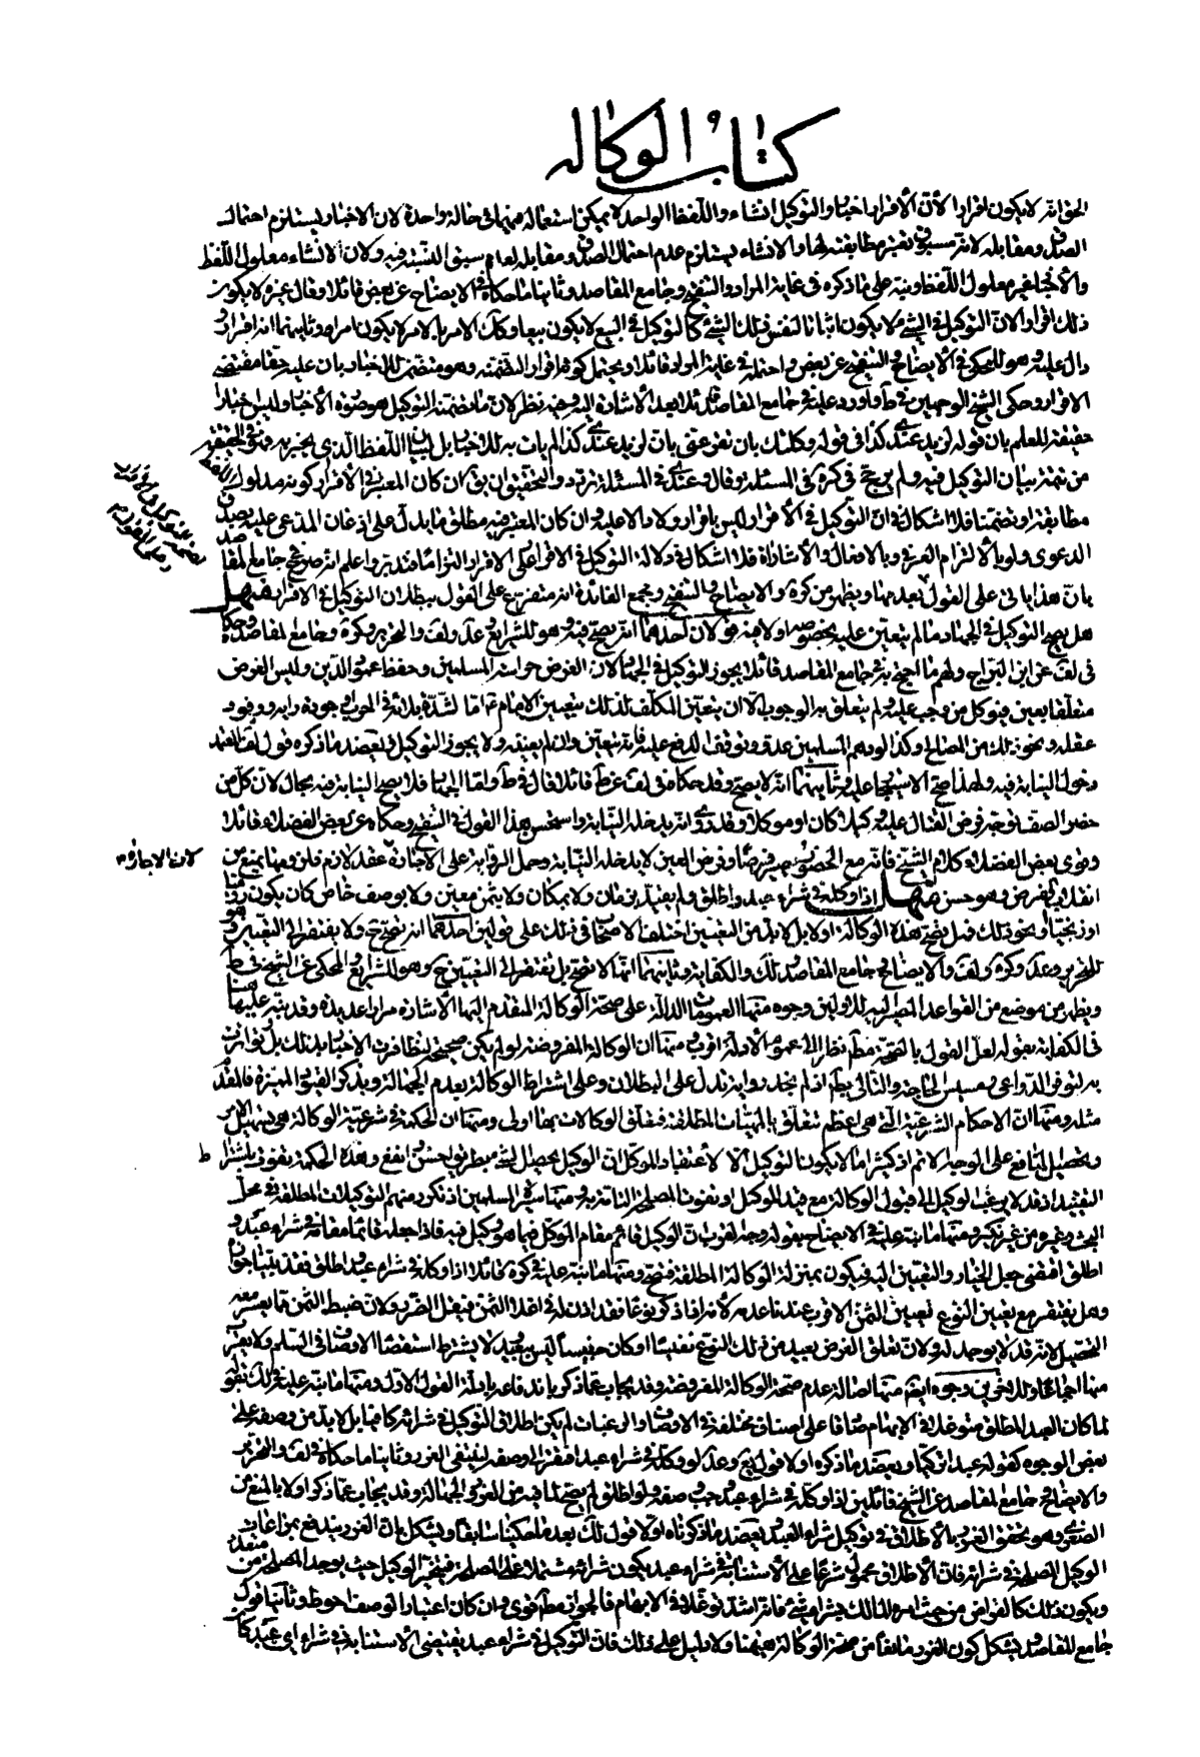 كتاب الوكالة
الحق انه لا يكون اقرارا لأن الأقرار اخبار والتوكيل انشاء واللفظ الواحد لا يمكن استعماله فيهما في حالة واحدة لان الاخبار يستلزم احتمال
الصدق ومقابله لانه مسبوق بغيره مطابقته لها والانشاء يستلزم عدم احتمال الصدق ومقابله لعدم سبق النسبة فيه ولان الانشاء معلول اللفظ
والأخبار غير معلول اللفظ ونبه على ما ذكره في غاية المراد والتنقيح وجامع المقاصد وثانيها ما حكاه في الايضاح عن بعض قائلا وقال غيره لا يكون
ذلك اقرارا لان التوكيل في الشئ لا يكون اثباتا لنفس ذلك الشئ كالتوكيل في البيع لا يكون بيعا وكك الامر بالامر لا يكون امرا وثانيهما انه اقرار
دال عليه وهو المحكي في الايضاح والتنقيح عن بعض واحتمله في غاية المراد قائلا ويحتمل كونه اقرارا لتضمنه وهو متضمن للاخبار بان عليه حقا
الاقرار وحكى الشيخ الوجهين في ط واورد عليه في جامع المقاصد قائلا بعد الأشارة اليه وفيه نظر لان ما تضمنه التوكيل هو صورة الأخبار وليس اخبارا
حقيقة للعلم بان قوله لزيد عندي كذا في قوله وكلتك بان تقر عني بان لزيد عندي كذا لم يات به للاخبار بل لبيان اللفظ الذي يخبر به فهو في الحقيقة
من تتمة بيان التوكيل فيه ولم يرجح في كره في المسئلة وقال وعندي في المسئلة تردد والتحقيق ان يق ان كان المعتبر في الاقرار كونه مدلولا للفظ
مطابقة او تضمنا فلا اشكال في ان التوكيل في الأقرار ليس باقرار ولا دلالة عليه وان كان المعتبر فيه مطلق ما يدل على اذعان المدعى عليه بصدق
الدعوى ولو بالألتزام العرفي وبالافعال والأشارات فلا اشكال في دلالة التوكيل في الاقرار على الاقرار التزاما فتدبر واعلم انه صرح في جامع المقاصد
بان هذا ياتي على القول بعدمها ويظهر من كره والايضاح والتنقيح ومجمع الفائدة انه متفرع على القول ببطلان التوكيل في الاقرار منهل
هل يصح التوكيل في الجهاد ما لم يتعين عليه بخصوصه اولا فيه قولان احدهما انه يصح فيه وهو للشرايع وعد ولف والتحرير وكره وجامع المقاصد وحكاه
في لف عن ابن البراج ولهم ما احتج به في جامع المقاصد قائلا يجوز التوكيل في الجهاد لان الغرض حراسة المسلمين وحفظ عمود الدين وليس الغرض
متعلقا بمعين فيتوكل من وجب عليه ولم يتعلق به الوجوب الا ان يتعين المكلف لذلك بتعيين الامام ع اما لشدة بلائه في الحرب او جودة رايه ووفور
عقله ونحو ذلك من المصالح وكذا لو دهم المسلمين عدو وتوقف الدفع عليه فانه يتعين وان لم يعينه ولا يجوز التوكيل ويعضد ما ذكره قول لف المعتمد
دخول النيابة فيه ولهذا صح الاستيجار عليه وثانيهما انه لا يصح وقد حكاه في لف عن ط قائلا قال في ط واما الجهاد فلا يصح النيابة فيه بحال لان كل من
حضر الصف توجه فرض القتال عليه وكيلا كان او موكلا وقد روى انه يدخله النيابة واستحسن هذا القول في التنقيح وحكاه عن بعض الفضلاء قائلا
وقوى بعض الفضلاء كلام الشيخ فانه مع الحضور يصير فرضا وفرض العين لا يدخله النيابة وحمل الرواية على الأجارة عقد لازم قلت ومنها يمنع من
انقلابه الى فرض وهو حسن منهل اذا وكله في شراء عبد واطلق ولم يقيد بزمان ولا بمكان ولا بثمن معين ولا بوصف خاص كان يكون روميا
او زنجيا ونحو ذلك فهل يصح هذه الوكالة اولا بل لابد من التعيين اختلف الاصحاب في ذلك على قولين احدهما انه يصح ولا يفتقر الى التعيين وهو
للتحرير وعد وكره ولف والايضاح وجامع المقاصد ولك والكفاية وثانيهما انها لا تصح بل تفتقر الى التعيين وهو للشرايع والمحكي عن الشيخ في ط
ويظهر من موضع من القواعد المصير اليه للاولين وجوه منها العمومات الدالة على صحة الوكالة المتقدم اليها الاشارة مرارا عديدة وقد نبه عليها
في الكفاية بقوله لعل القول بالصحة مطلقا نظرا الى عموم الأدلة اقرب ومنها ان الوكالة المفروضة لو لم يكن صحيحة لتظافرت الاخبار بذلك بل تواترت
به لتوفر الدواعي ومسيس الحاجة والتالي بط اذ لم نجد رواية تدل على البطلان وعلى اشتراط الوكالة بعدم الجهالة وبذكر القيود المميزة فالمقدم
مثله ومنها ان الاحكام الشرعية التي هي اعظم تتعلق بالمهيات المطلقة فتعلق الوكالات بها اولى ومنها ان الحكمة في شرعية الوكالة هي تسهيل الامر
وتحصيل المنافع على الوجه الاتم اذ كثيرا ما لا يكون التوكيل الا لاعتقاد الموكل ان الوكيل يحصل الشئ بطريق احسن وانفع وهذه الحكمة تفوت باشتراط
التقييد اذ قد لا يرغب الوكيل الى قبول الوكالة مع قيد الموكل او تفوت المصلحة الزائدة به ومنها سيرة المسلمين اذ تكرر منهم التوكيلات المطلقة في محل
البحث وغيره من غير نكير ومنها ما نبه عليه في الايضاح بقوله وجه القرب ان الوكيل قائم مقام الموكل فيما هو وكيل فيه فاذا جعله قائما مقامه في شراء عبد و
اطلق اقتضى جعل الخيار والتعيين اليه فيكون بمنزلة الوكالة المطلقة فتصح ومنها ما نبه عليه في كره قائلا اذا وكله في شراء عبد واطلق فقد بينا جوازه
وهل يفتقر مع تعيين النوع تعيين الثمن الاقرب عندنا عدمه لأنه اذا ذكر نوعا فقد اذن له في اغلاه ثمنا فيقل الغرر ولان ضبط الثمن مما يعسر معه
التحصيل لانه قد لا يوجد له ولان تعلق الغرض بعبد من ذلك النوع نفيسا او كان خسيسا ليس ببعيد لا يشترط استقصاء الاوصاف في السلم ولا بقرب
منها اجماعا وللاخرين وجوه ايضا منها اصالة عدم صحة الوكالة المفروضة وقد يجاب عما ذكر باندفاعه بادلة القول الاول ومنها ما نبه عليه في لك بقوله
لما كان العبد المطلق متوغلا في الابهام صادقا على اصناف مختلفة في الاوصاف والرغبات لم يكن اطلاق التوكيل في شرائه كافيا بل لابد من وصفه على
بعض الوجوه كقوله عبد تركيا ويعضد ما ذكره اولا قول يع وعد لو وكله في شراء عبد افتقر الى وصفه لينتفي الغرر وثانيا ما حكاه في لف والتحرير
والايضاح وجامع المقاصد عن الشيخ قائلين اذا وكله في شراء عبد وجب وصفه ولو اطلق لم يصح لما فيه من الغرر والجهالة وقد يجاب عما ذكر اولا بالمنع من
الصغرى وهو تحقق الغرر بالاطلاق في توكيل شراء العبد ويعضد ما ذكرناه اولا قول لك بعد ما حكينا سابقا ويشكل بان الغرر يندفع بمراعات
الوكيل المصلحة في شرائه فان الأطلاق محمول شرعا على الاستنابة في شراء عبد يكون شرائه مشتملا على المصلحة فيتخير الوكيل حيث يوجد المصلحة في متعدد
ويكون ذلك كالقراض من حيث امره المالك بشراء شئ فانه اشد توغلا في الابهام فالجواز مطلقا قوي وان كان اعتبار الوصف احوط وثانيها قول
جامع المقاصد يشكل كون الغرر مانعا من صحة الوكالة هيهنا ولا دليل على ذلك فان التوكيل في شراء عبد يقتضي الاستنابة في شراء اي عبد كان
لان الاجارة